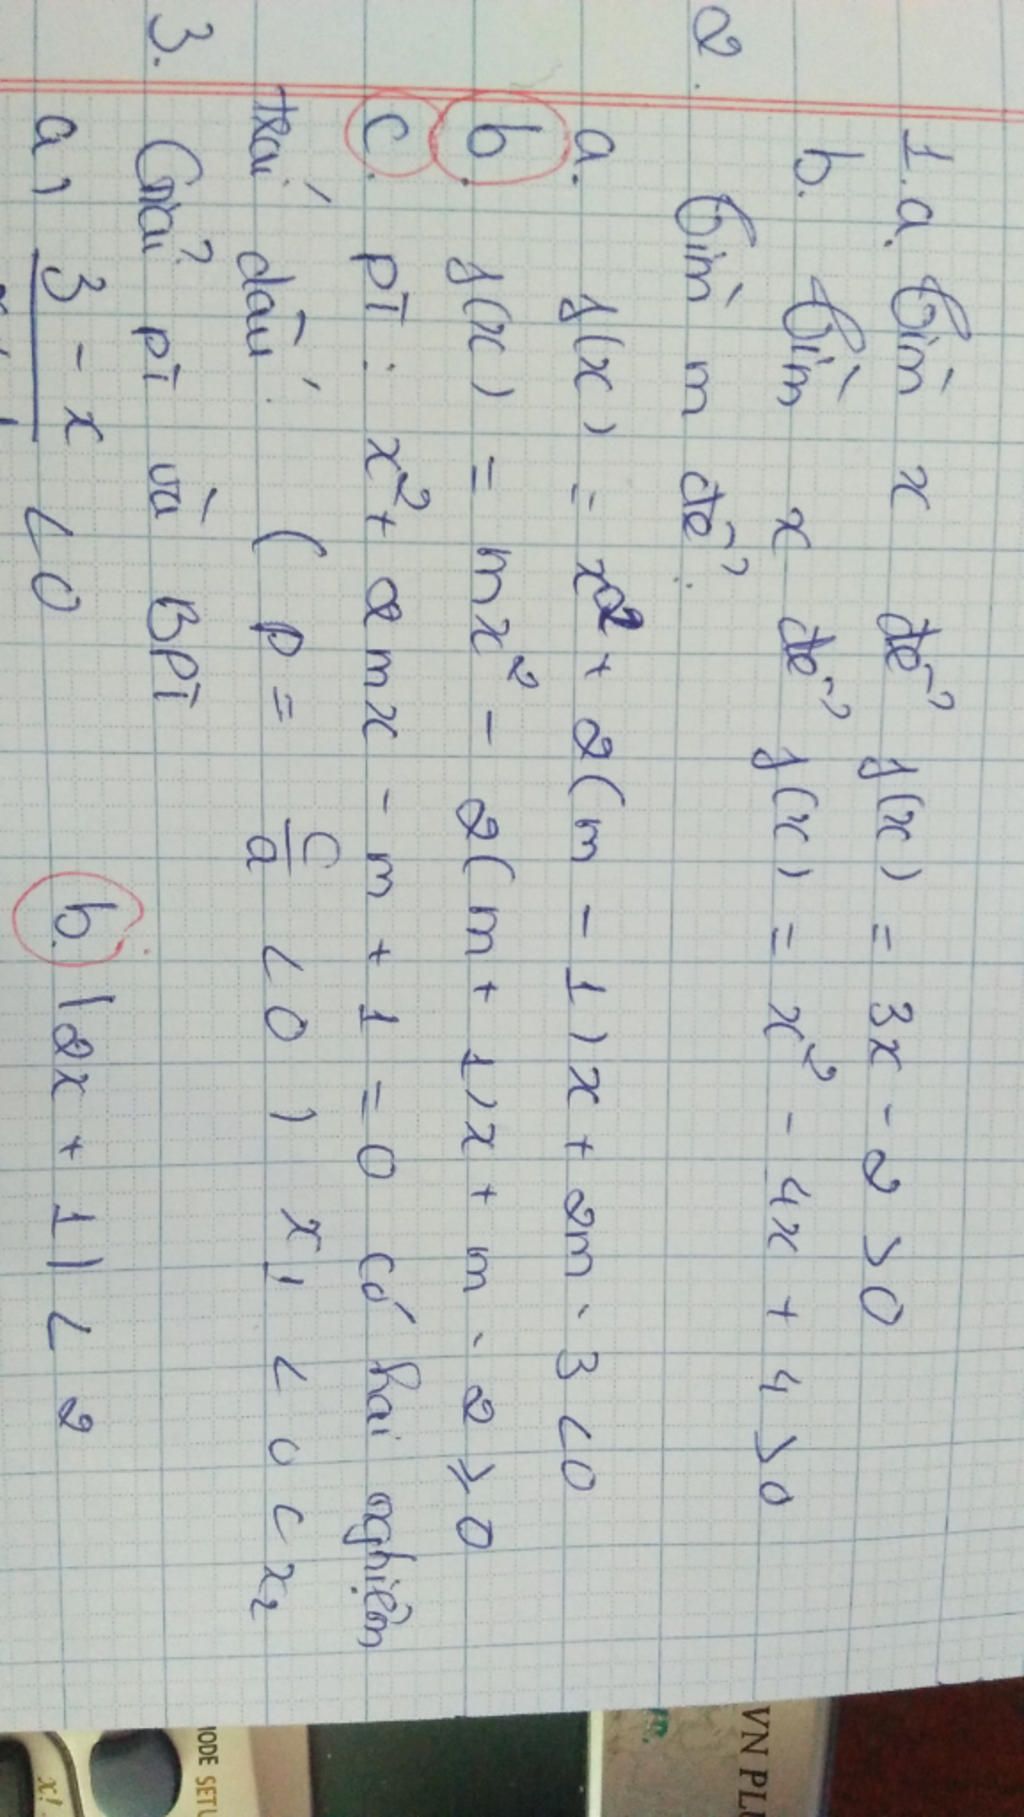 1.a. Tìm x để f(x) = 3x - 2 > 0
b. Tìm x để f(x) = x² - 4x + 4 > 0
2. Tìm m để:
a. f(x) = x² + 2(m - 1)x + 2m - 3 < 0
b. f(x) = mx² - 2(m + 1)x + m - 2 ≥ 0
c. PT: x² + 2mx - m + 1 = 0 có hai nghiệm
trái dấu. (P = c/a < 0) x₁ < 0 < x₂
3. Giải PT và BPT
a, 3 - x < 0 b. |2x + 1| < 2
VN PLU
MODE SETU
x!